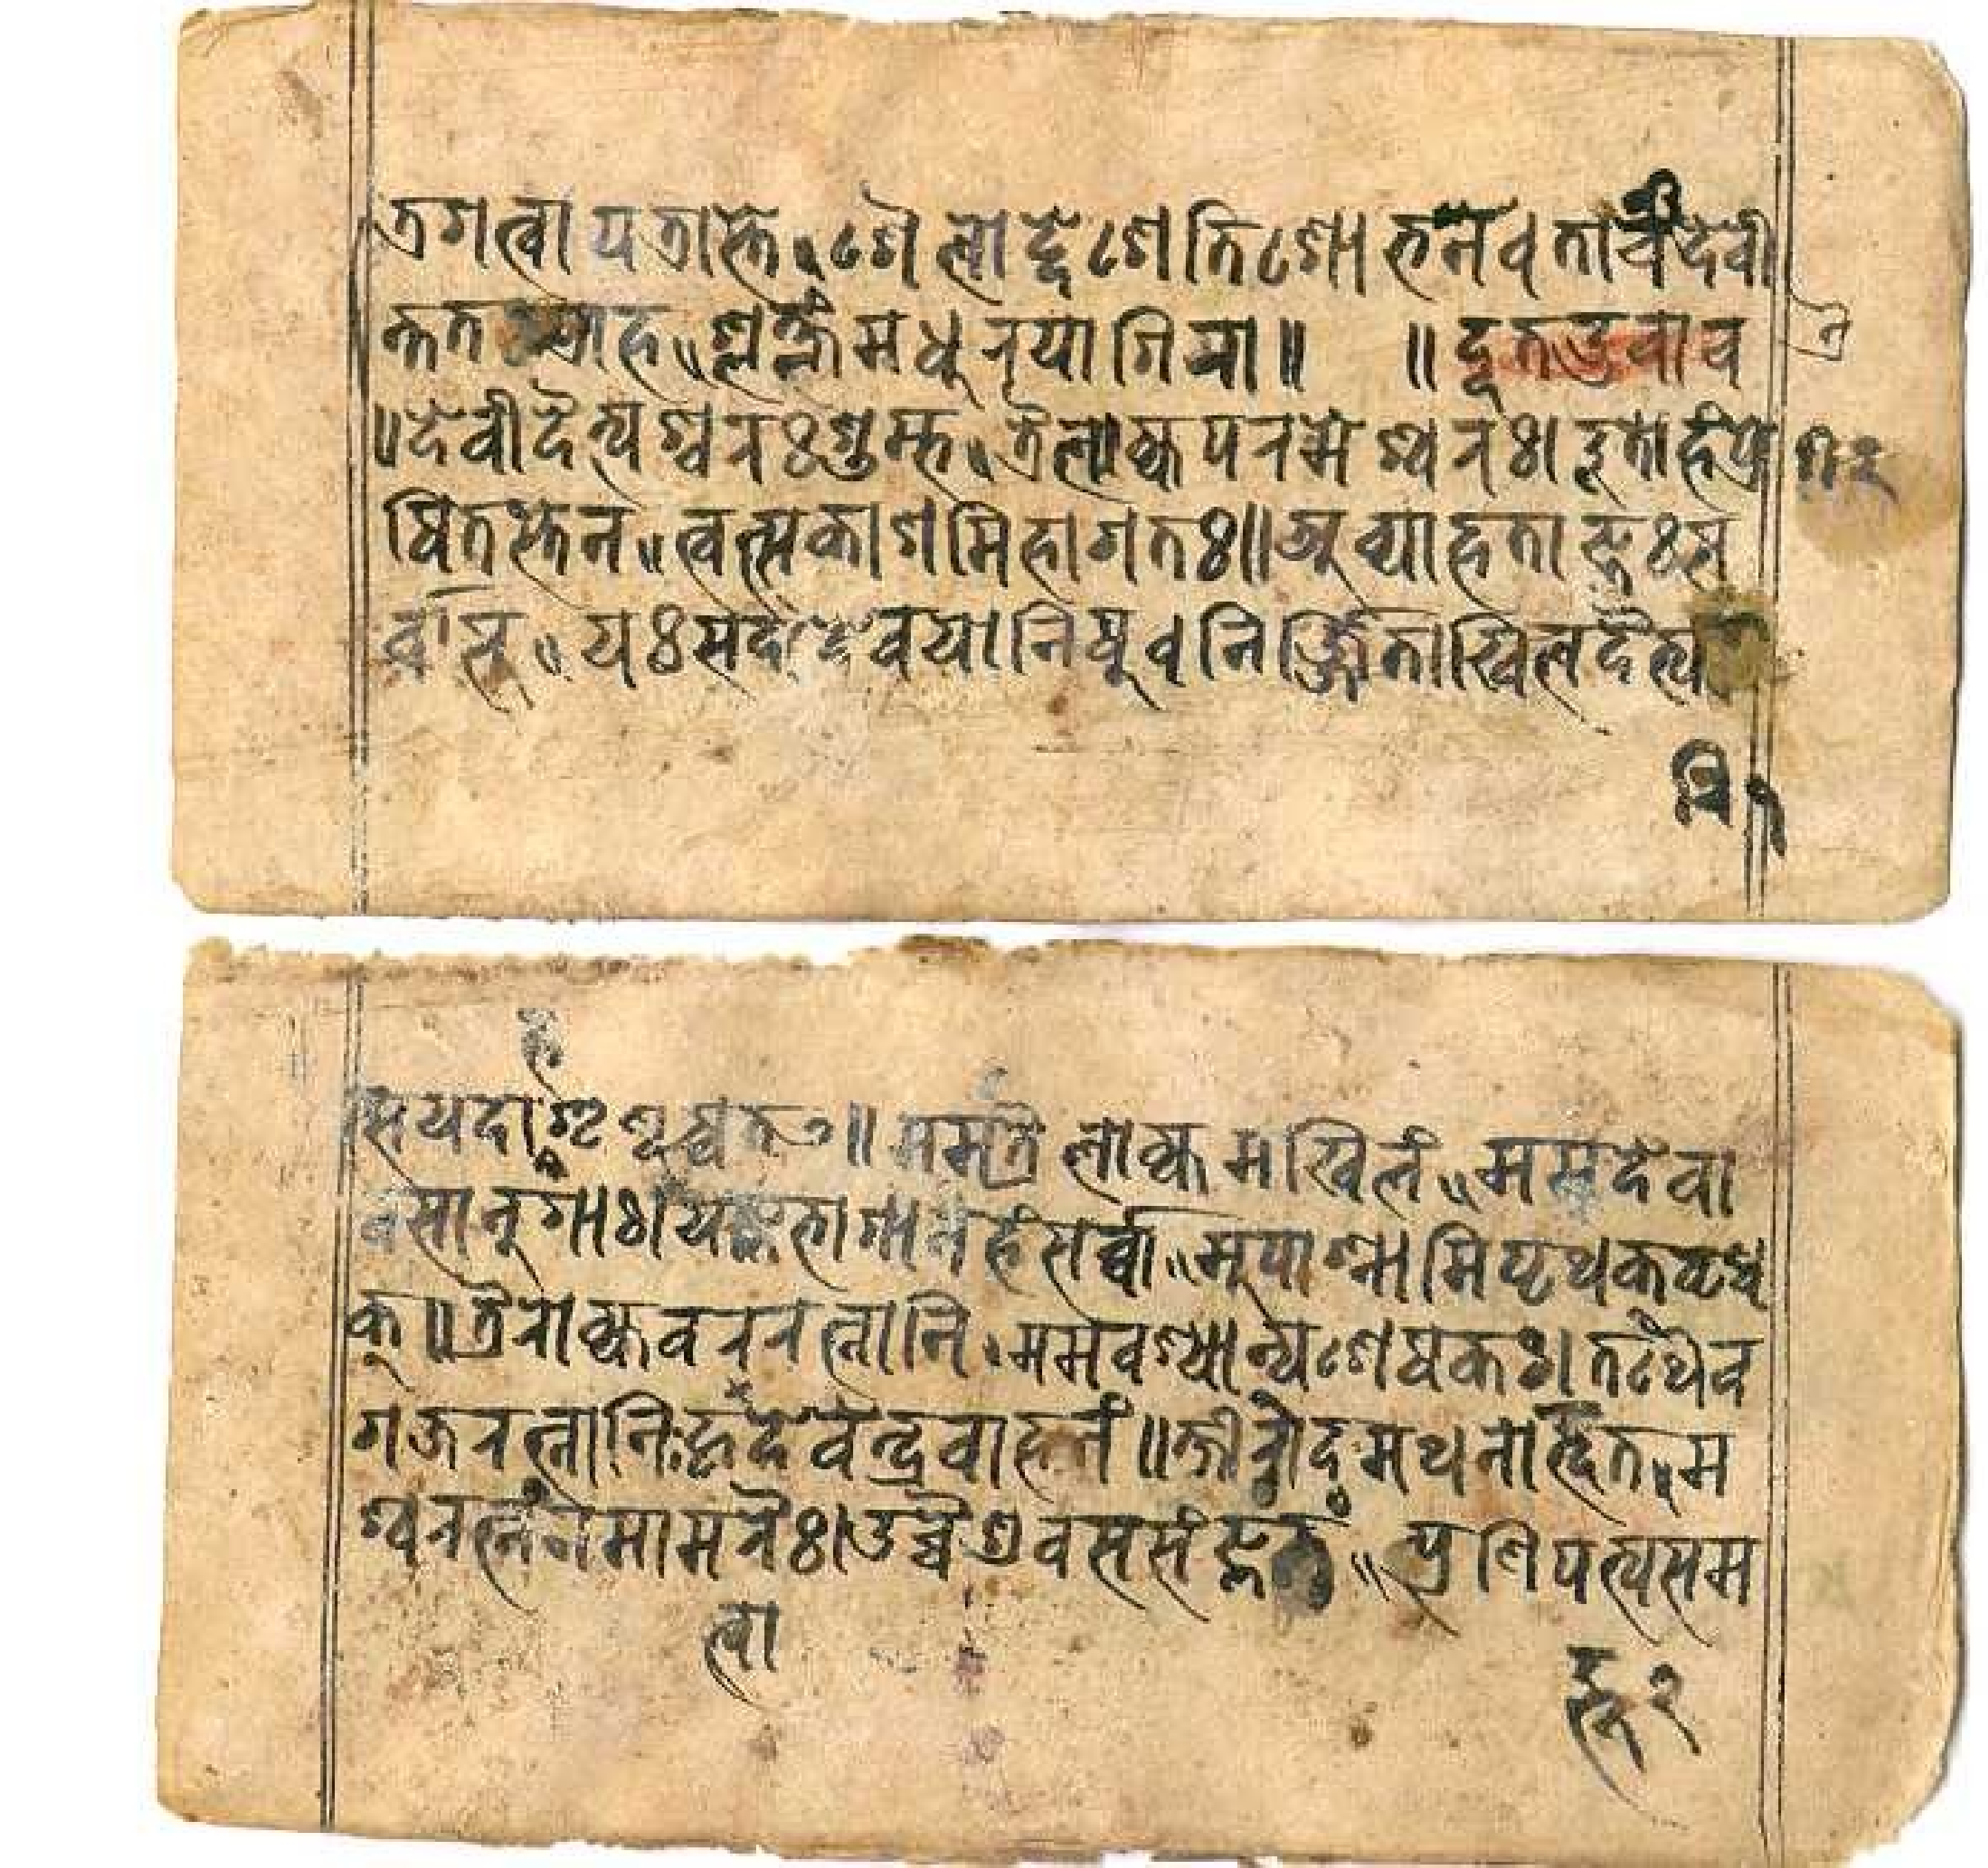 त्रगत्वा यत्रास्ते ॥ शैलोद्देशेतिशोभने ॥ तां च देवी
तत प्राह ॥ श्लक्ष्णं मधुरया गिरा ॥ ॥ दूत उवाच
॥ देवी दैत्यश्वरः शुम्भ ॥ त्रैलोक्य परमेश्वरः । दूतोहं प्रे
षितस्तेन ॥ त्वत्सकाशमिहागतः ॥ अव्याहताज्ञः स
र्वासु ॥ यः सदा देवयोनिषु । निर्ज्जिताखिलदैत्या
रि
स यदाह शृणुष्व तत् ॥ मम त्रैलोक्यमखिलं ॥ मम देवा
वसानुगाः । यज्ञभागानहं सर्व्वा ॥ मुपाश्नामि पृथक पृथ
क् ॥ त्रैलोक्य वररत्नानि । मम वश्यान्यशेषतः । तथैव
गजरत्नानि हृत्वा देवेन्द्रवाहनं ॥ क्षीरोदमथनोद्भूत ॥ म
श्वरत्नं ममामरैः । उच्चैश्रवससंज्ञन्तं ॥ प्रणिपत्य सम
त्वा